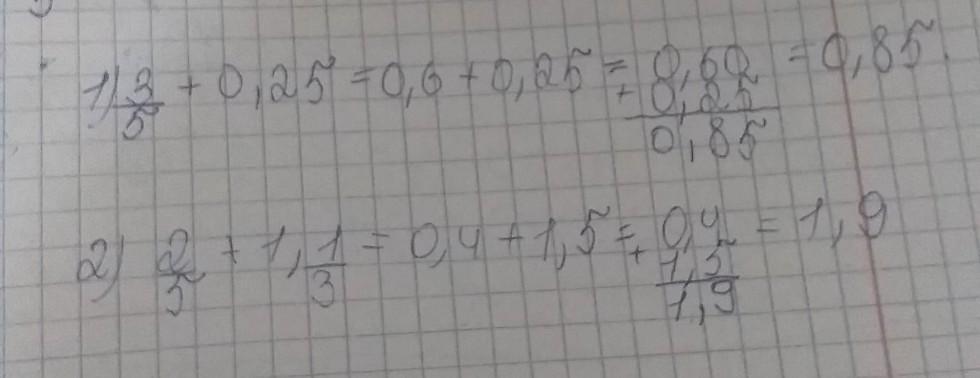 1) 3/5 + 0,25 = 0,6 + 0,25 = 0,60 = 0,85
+ 0,25
0,85
2) 2/5 + 1, 1/3 = 0,4 + 1,5 = 0,4 = 1,9
+ 1,5
1,9